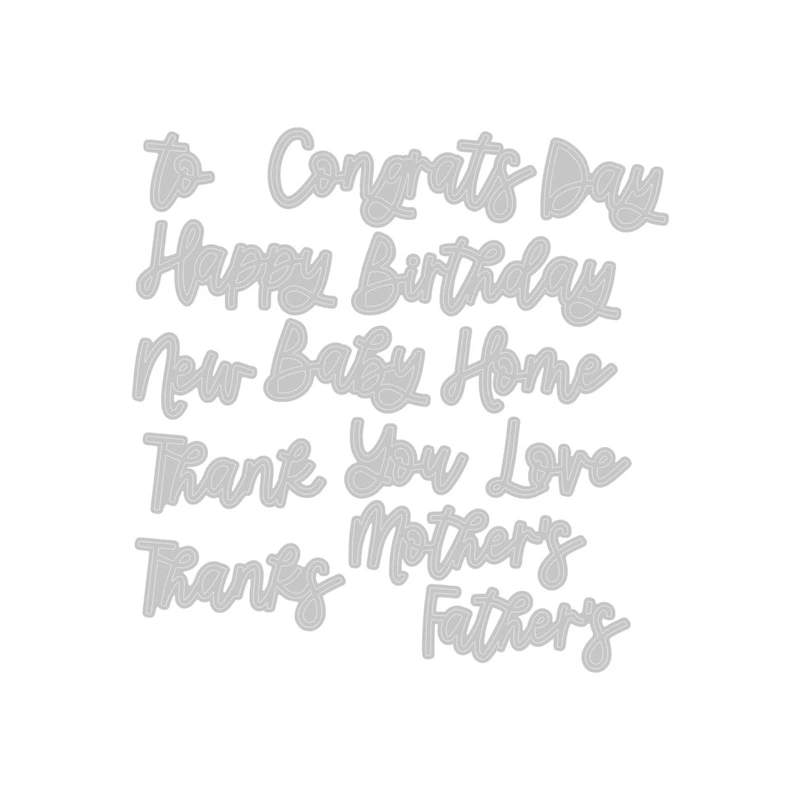 to Congrats Day
Happy Birthday
New Baby Home
Thank You Love
Mother's
Thanks
Father's